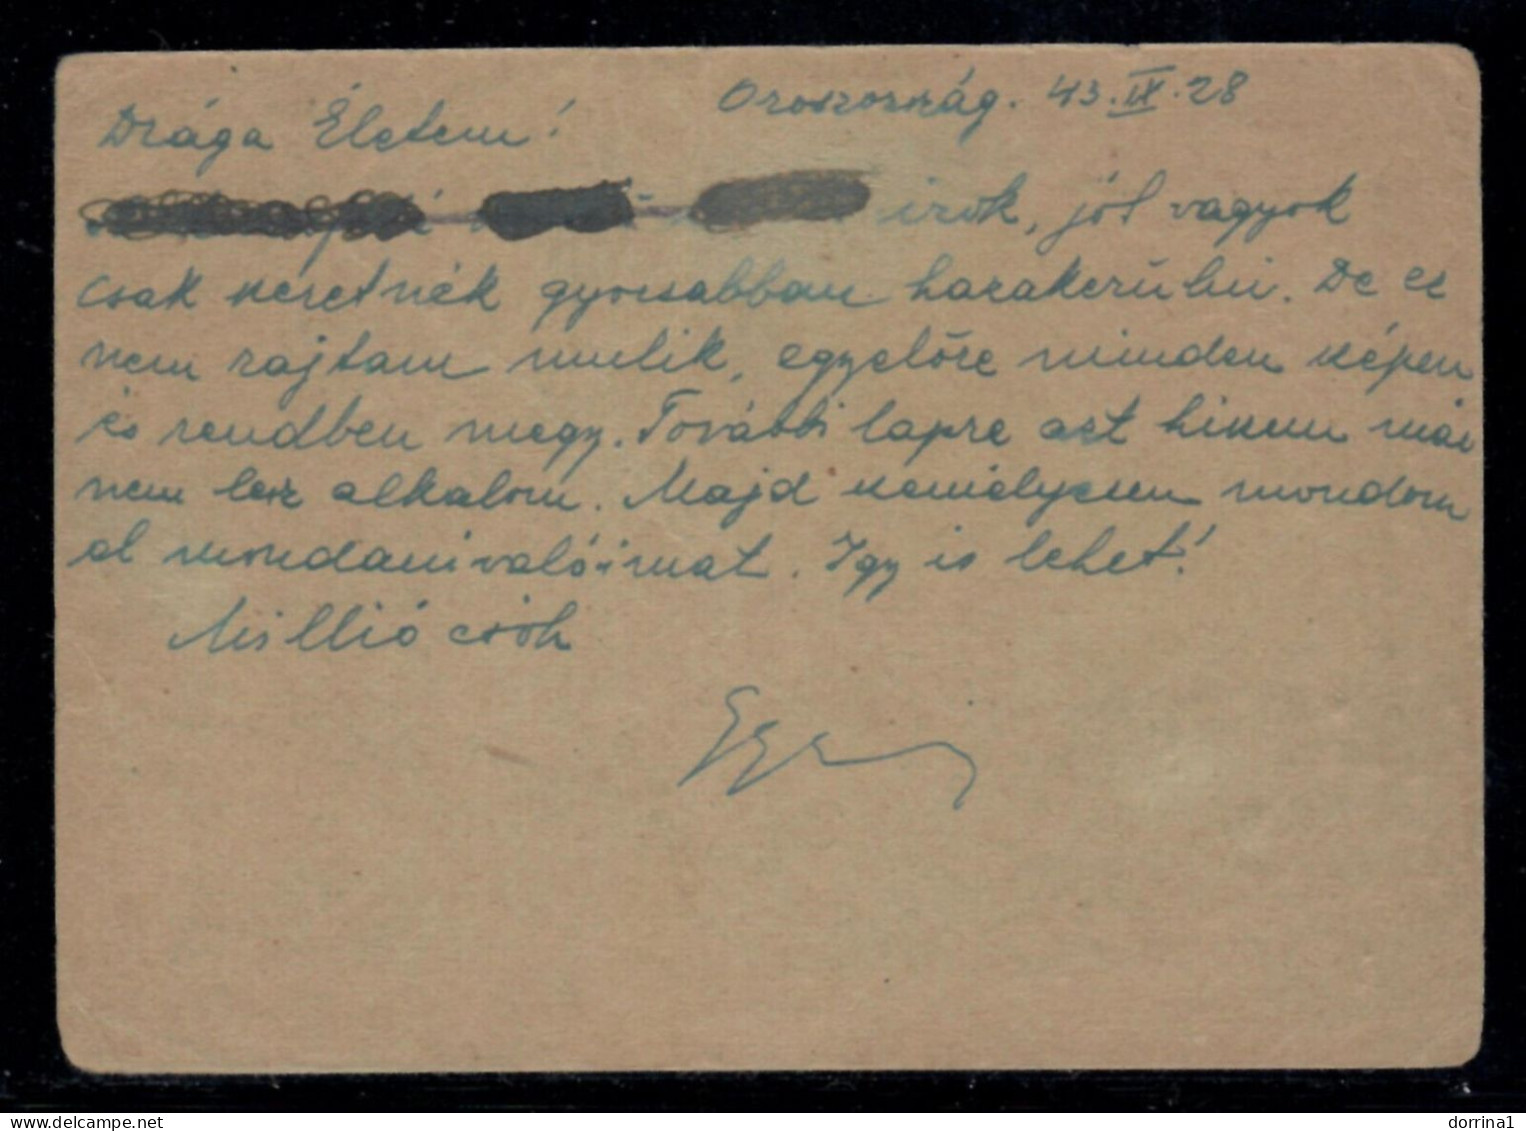 Oroszország. 43. IX. 28
Drága Életem!
irok, jól vagyok
csak szeretnék gyorsabban hazakerülni. De ez
nem rajtam mulik, egyelőre minden szépen
és rendben megy. További lapra azt hiszem már
nem lesz alkalom. Majd személyesen mondom
el mondanivalóimat. Igy is lehet!
Millió csók
dorrina1